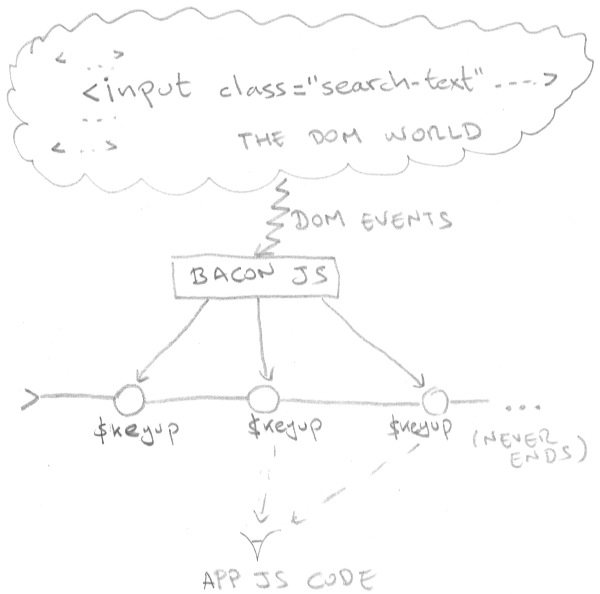 < ... >
<input class="search-text" ---->
...
< ... >
THE DOM WORLD
DOM EVENTS
BACON JS
$keyup
$keyup
$keyup
...
(NEVER
ENDS)
APP JS CODE